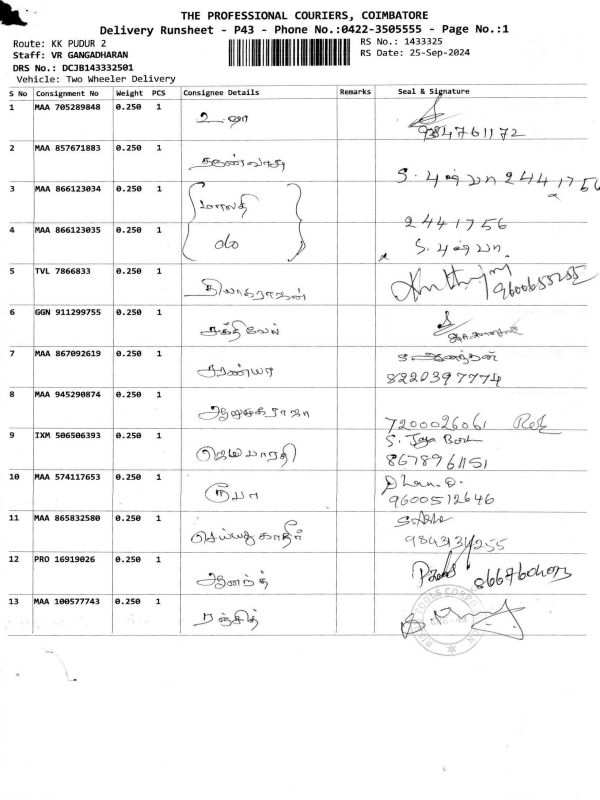 THE PROFESSIONAL COURIERS, COIMBATORE
Delivery Runsheet - P43 - Phone No.:0422-3505555 - Page No.:1
Route: KK PUDUR 2
RS No.: 1433325
Staff: VR GANGADHARAN
RS Date: 25-Sep-2024
DRS No.: DCJB143332501
Vehicle: Two Wheeler Delivery
S No Consignment No Weight PCS Consignee Details Remarks Seal & Signature
1 MAA 705289848 0.250 1 உஷா
9384761172
2 MAA 857671883 0.250 1
S. புஷ்பா 2441756
3 MAA 866123034 0.250 1 மாலதி
2441756
4 MAA 866123035 0.250 1 do
S. புஷ்பா
5 TVL 7866833 0.250 1 தியாகராஜன்
9600655255
6 GGN 911299755 0.250 1 சக்திவேல்
7 MAA 867092619 0.250 1 சரண்யா
8220397774
8 MAA 945290874 0.250 1
7200026061
9 IXM 506506393 0.250 1 ஜெயபாரதி
S. Jaya
8678961151
10 MAA 574117653 0.250 1 ரூபா
9600512646
11 MAA 865832580 0.250 1 செய்யது காதிர்
12 PRO 16919026 0.250 1 ஆனந்த்
8667604073
13 MAA 100577743 0.250 1 ரஞ்சித்